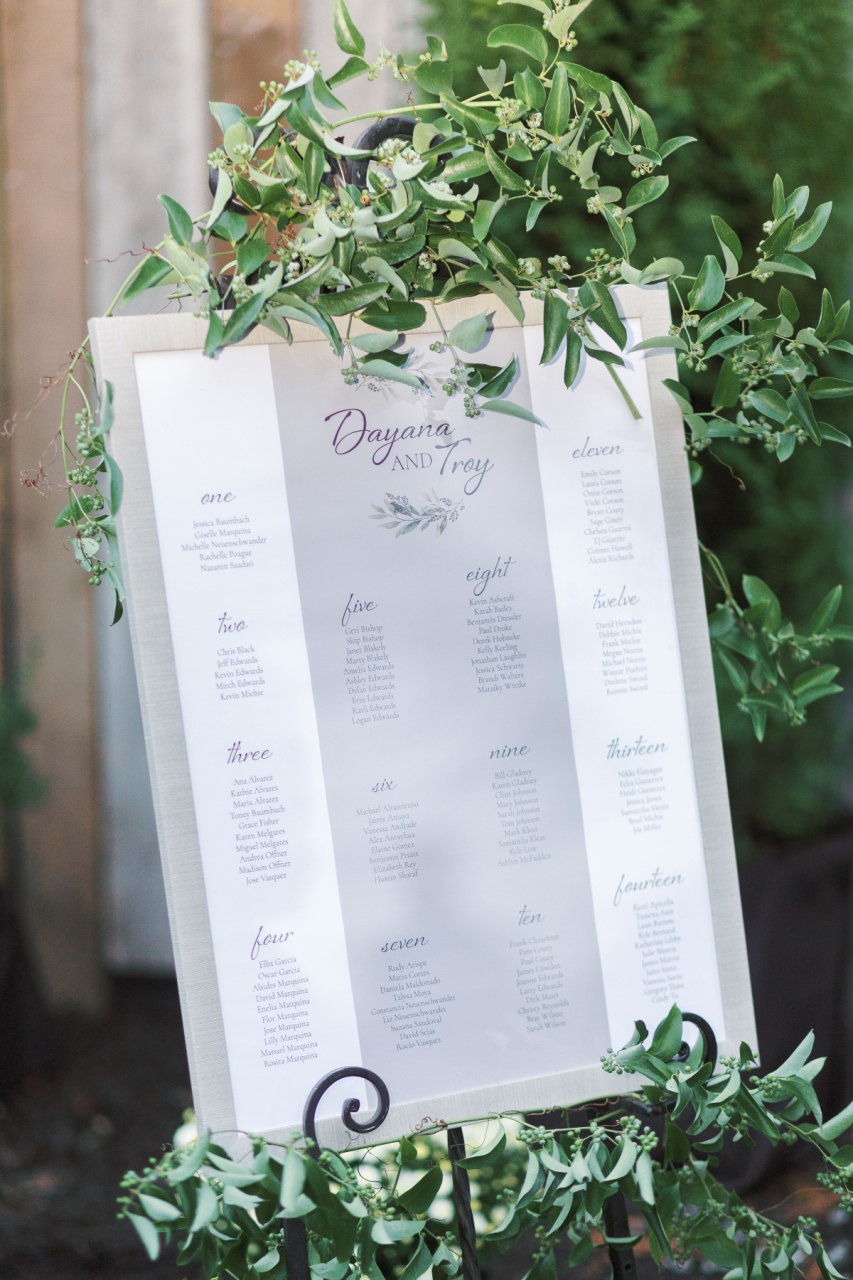 Dayana
AND Troy
one
Jessica Baumbach
Giselle Marquina
Michelle Neuenschwander
Rachelle Pougue
Nazanin Saadati
two
Chris Black
Jeff Edwards
Kevin Edwards
Mitch Edwards
Kevin Michie
three
Ana Alvarez
Kathie Alvarez
Maria Alvarez
Toney Baumbach
Grace Fisher
Karen Melgares
Miguel Melgares
Andrea Offner
Madison Offner
Jose Vasquez
four
Elba Garcia
Oscar Garcia
Alaides Marquina
David Marquina
Enelia Marquina
Flor Marquina
Jose Marquina
Lilly Marquina
Manuel Marquina
Rosita Marquina
five
Geri Bishop
Skip Bishop
Janet Blakely
Marty Blakely
Amelia Edwards
Ashley Edwards
Dylan Edwards
Erin Edwards
Karli Edwards
Logan Edwards
six
Michael Altamirano
Jaime Amaya
Vanessa Andrade
Alex
Elaine Gomez
Benjamin
Elizabeth Rey
Husem Sharaf
seven
Rudy Arispe
Maria Cortes
Daniela Maldonado
Talysa Moya
Constancia Neuenschwander
Liz Neuenschwander
Suzana Sandoval
David Sejas
Rocio Vasquez
eight
Kevin Ashcraft
Karah Bailey
Benjamin Dressler
Paul Droke
Derek Hohneke
Kelly Keeling
Jonathan Laughlin
Jessica Schwartz
Brandi Walters
Maratky Wintke
nine
Bill Gladney
Karen Gladney
Clint Johnson
Mary Johnson
Sarah Johnson
Tom Johnson
Mark Kleai
Samantha Kleai
Kyle Low
Ashlen McFadden
ten
Frank Cheatham
Pam Couty
Paul Couty
James Cowden
Joanna Edwards
Larry Edwards
Dirk Maier
Christy Reynolds
Beau Wilson
Sarah Wilson
eleven
Emily Corson
Laura Corson
Ozzie Corson
Vicki Corson
Bryan Couty
Sage Couty
Chelsea Guarini
TJ Guarini
Connet Howell
Alexis Richards
twelve
David Herndon
Debbie Michie
Frank Michie
Megan Norris
Michael Norris
Winnie Pucher
Darlene Sword
Ronnie Sword
thirteen
Nikki Flanagan
Felix Gutierrez
Heidi Gutierrez
Jessica Jones
Samantha Meyer
Brad Michie
Joe Miller
fourteen
Kerri
Tamena
Louis Barrow
Kyle Bernard
Katherine Libby
Julie Morris
James Morris
Gregory Thien
Cindy Tu